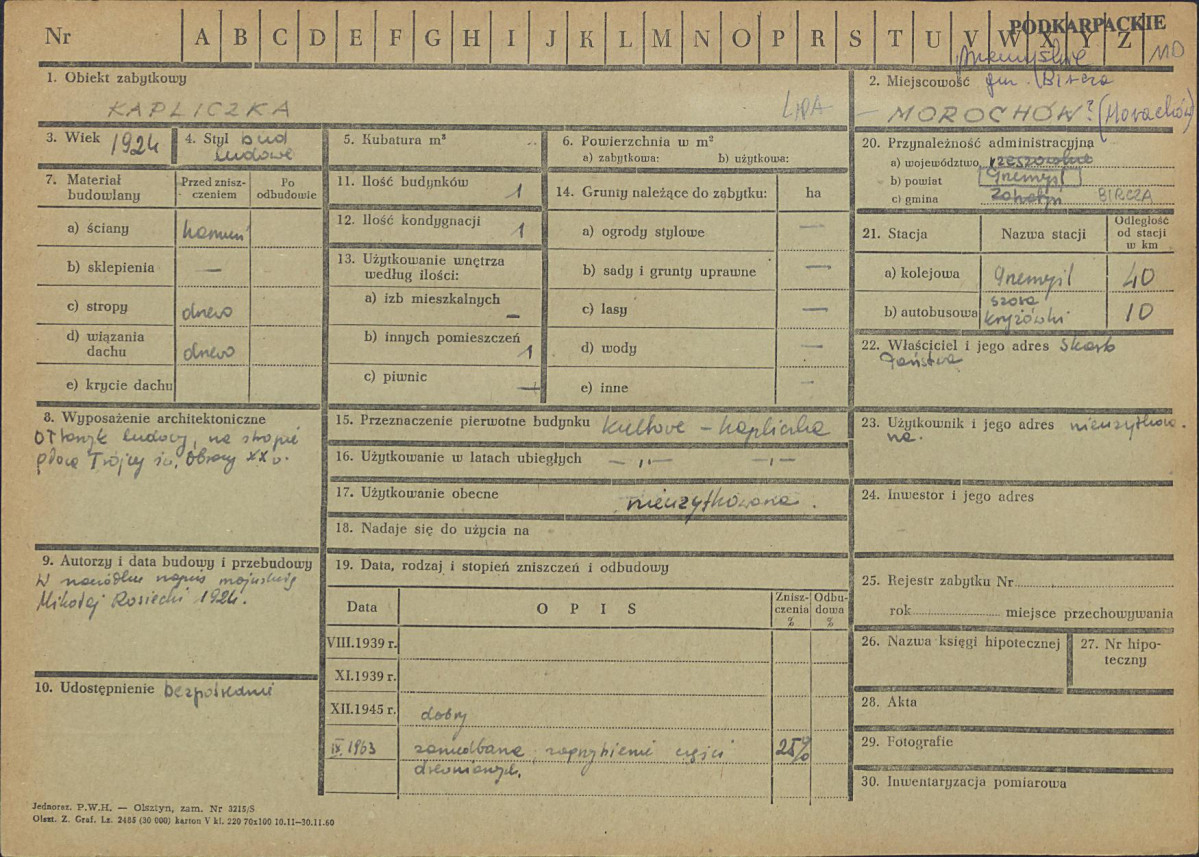 Nr A B C D E F G H I J K L M N O P R S T U V W X Y Z
PODKARPACKIE
1. Obiekt zabytkowy
KAPLICZKA
2. Miejscowość gm. Bircza
MOROCHÓW? (Morochów)
3. Wiek 1924
4. Styl bud
ludowe
5. Kubatura m³
6. Powierzchnia w m²
a) zabytkowa: b) użytkowa:
20. Przynależność administracyjna
a) województwo rzeszowskie
b) powiat Przemyśl
c) gmina BIRCZA
7. Materiał budowlany
Przed znisz-
czeniem
Po
odbudowie
a) ściany kamień
b) sklepienia —
c) stropy drewo
d) wiązania
dachu drewo
e) krycie dachu
11. Ilość budynków 1
12. Ilość kondygnacji 1
13. Użytkowanie wnętrza
według ilości:
a) izb mieszkalnych —
b) innych pomieszczeń 1
c) piwnic —
14. Grunty należące do zabytku: ha
a) ogrody stylowe —
b) sady i grunty uprawne —
c) lasy —
d) wody —
e) inne -
21. Stacja Nazwa stacji
Odległość
od stacji
w km
a) kolejowa Przemyśl 40
b) autobusowa
Kryżówki 10
22. Właściciel i jego adres Skarb
Państwa
8. Wyposażenie architektoniczne
Ołtarzyk ludowy, na stropie
Trójcy św. Obrazy XX w.
15. Przeznaczenie pierwotne budynku kultowe – kapliczka
16. Użytkowanie w latach ubiegłych – „ – – „ –
17. Użytkowanie obecne nieużytkowana.
18. Nadaje się do użycia na
23. Użytkownik i jego adres nieużytkowa-
na.
24. Inwestor i jego adres
9. Autorzy i data budowy i przebudowy
W napis
Mikołaj Rosiecki 1924.
10. Udostępnienie bezpośrednie
19. Data, rodzaj i stopień zniszczeń i odbudowy
Data OPIS
Znisz-
czenia
%
Odbu-
dowa
%
VIII.1939 r.
XI.1939 r.
XII.1945 r. dobry
IX.1963 zaniedbana, zagrzybienie części 25%
drewnianych.
25. Rejestr zabytku Nr
rok miejsce przechowywania
26. Nazwa księgi hipotecznej
27. Nr hipo-
teczny
28. Akta
29. Fotografie
30. Inwentaryzacja pomiarowa
Jednoraz. P.W.H. — Olsztyn, zam. Nr 3215/S
Olszt. Z. Graf. Lz. 2485 (30 000) karton V kl. 220 70x100 10.11—30.11.60